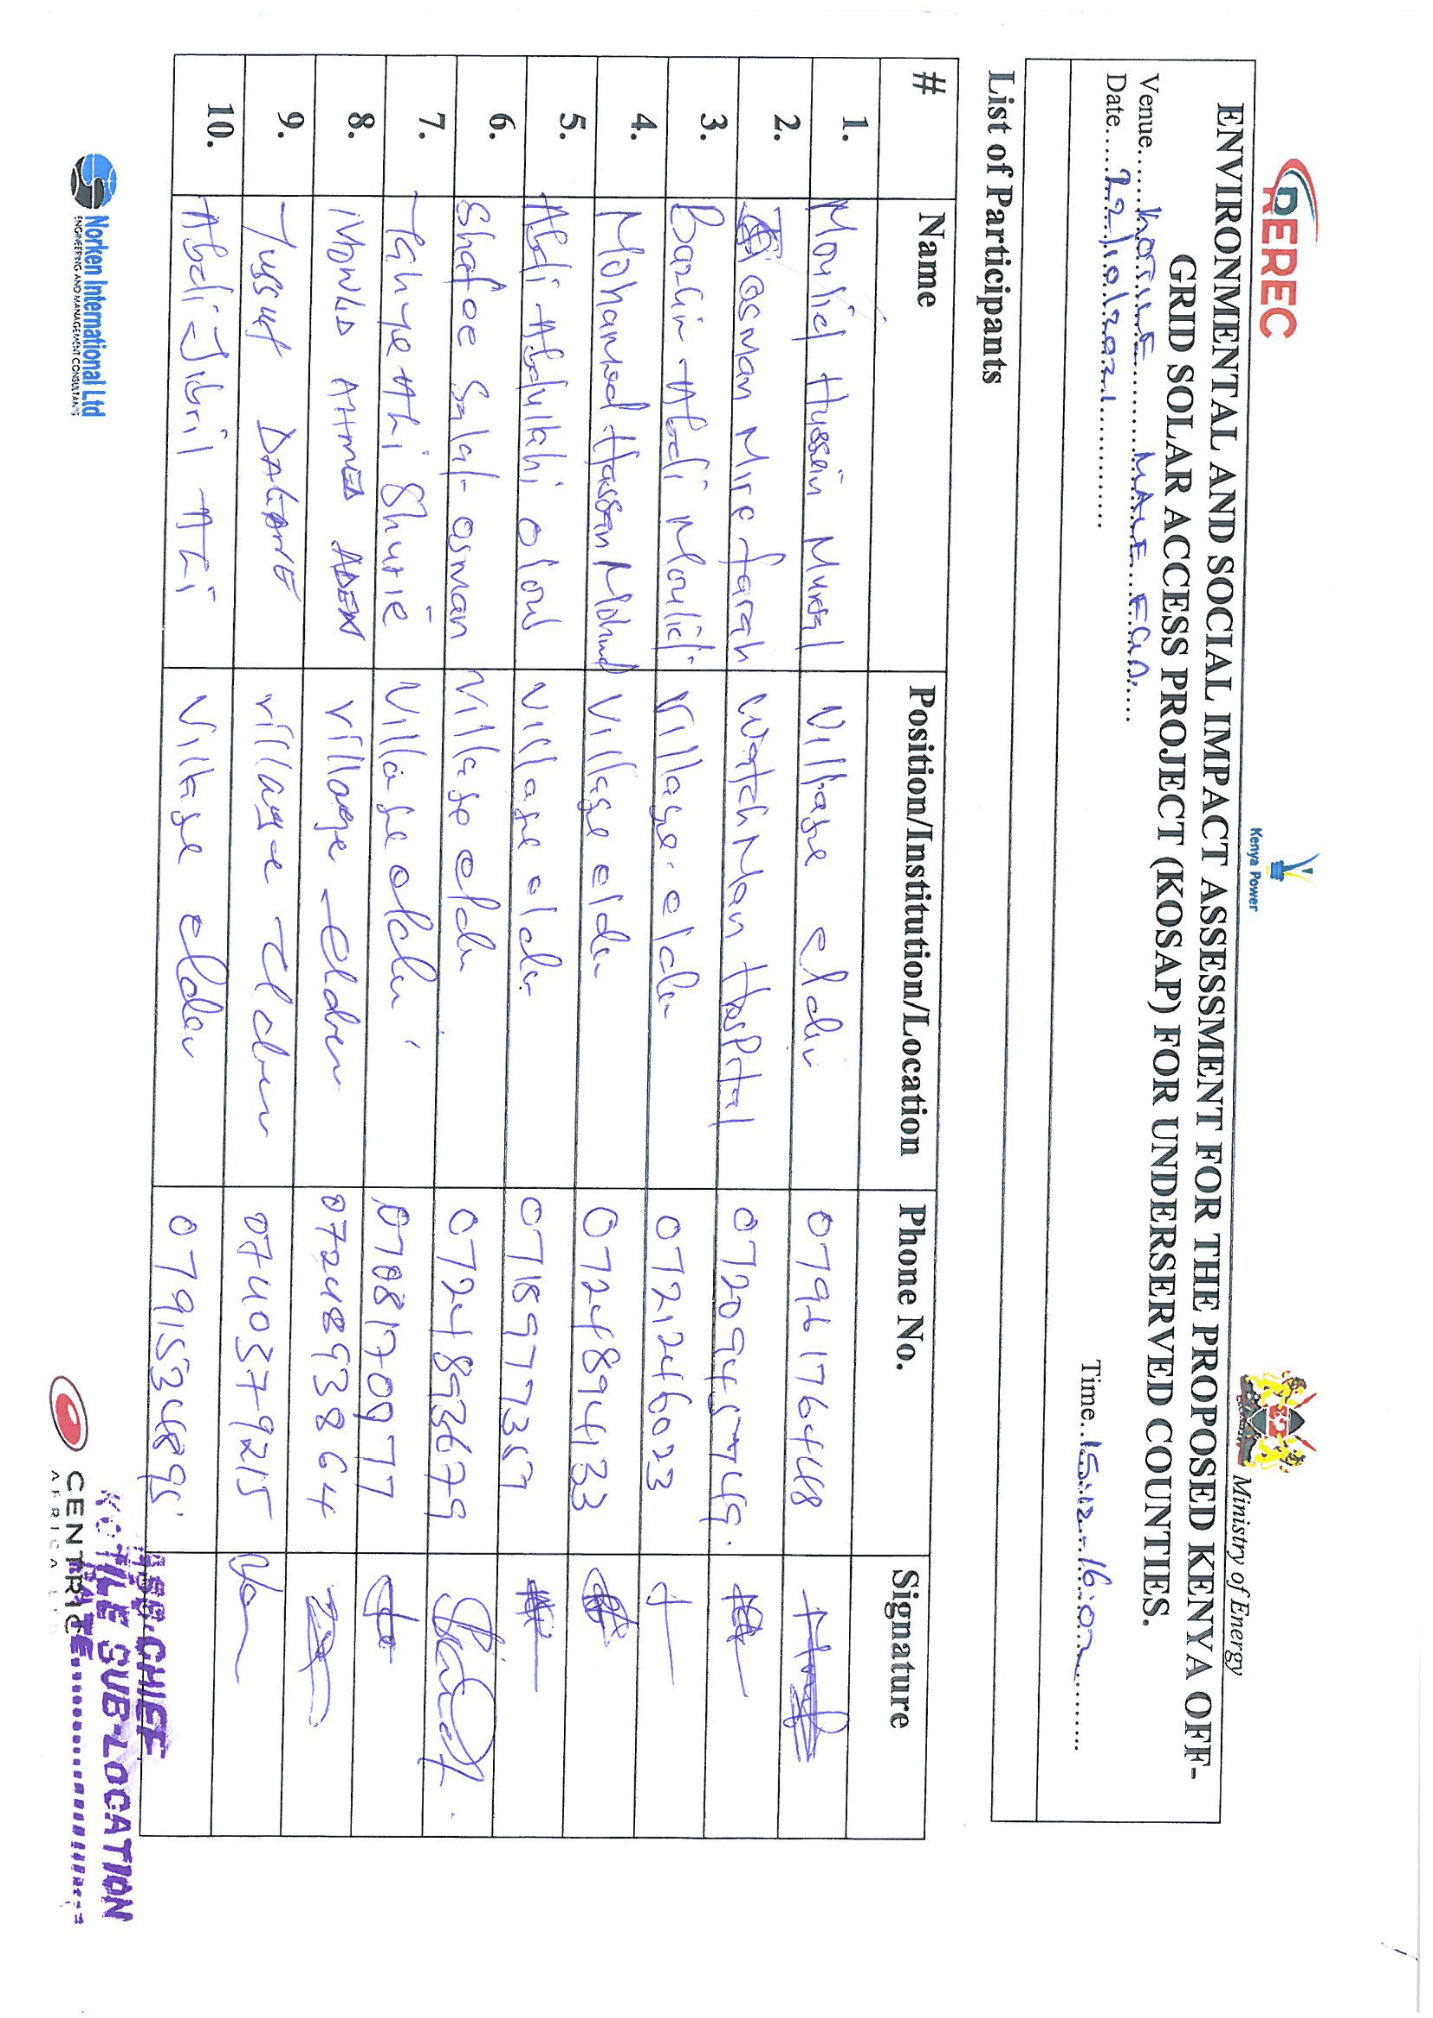 REREC
Kenya Power
Ministry of Energy
ENVIRONMENTAL AND SOCIAL IMPACT ASSESSMENT FOR THE PROPOSED KENYA OFF-
GRID SOLAR ACCESS PROJECT (KOSAP) FOR UNDERSERVED COUNTIES.
Venue......KOTILE...............MALE...FGD.....
Date.....22/10/2021............... Time..15:12-16:02..........
List of Participants
# Name Position/Institution/Location Phone No. Signature
1. Moulid Hussein Mursal Village elder 0796176448
2. Osman Mire farah WatchMan Hospital 0720945749.
3. Abdi Moulid Village-elder 0721246023
4. Mohamed Hassan Mohmd Village elder 0724894133
5. Abdi Abdullahi olow Village elder 0718977357
6. Shafee Salat osman Village elder 0724893679
7. Shurie Village elder 0708170977
8. MOWLID AHMED ADEN village Elder 0724893864
9. Yussuf village Elder 0740379215
10. Abdi Jibril Village elder 0791534895
Norken International Ltd
ENGINEERING AND MANAGEMENT CONSULTANTS
CENTRIC
AFRICA
ASS. CHIEF
KOTILE SUB-LOCATION
DATE..................